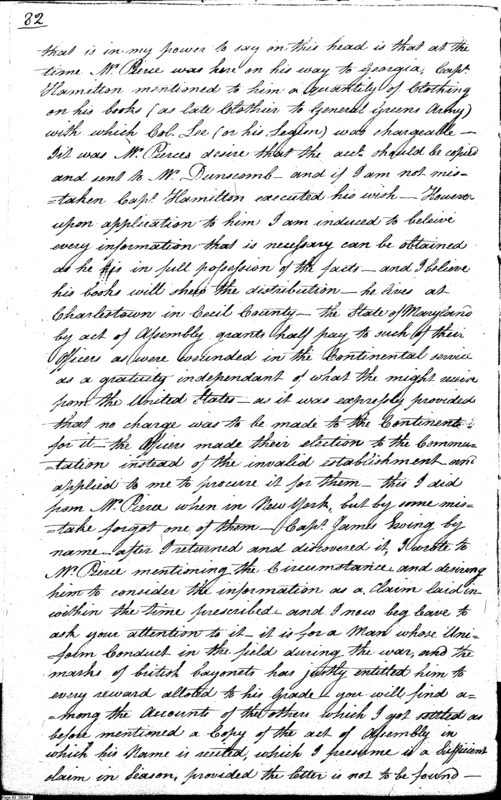 82
that is in my power to say on this head is that at the
time Mr. Pierce was here on his way to Georgia, Capt.
Hamilton mentioned to him a quantity of Clothing
on his books (as late Clothier to General Greens Army)
with which Col. Lee (or his Legion) was chargeable –
I it was Mr. Pierces desire that the acct. should be copied
and sent to Mr. Dunscomb – and if I am not mis=
=taken Capt. Hamilton executed his wish – However
upon application to him I am induced to beleive
every information that is necessary can be obtained
as he is in full possession of the facts – and I believe
his books will shew the distribution – he lives at
Charlestown in Cecil County – the State of Maryland
by act of Assembly grants half pay to such of their
Officers as were wounded in the Continental service
as a gratuity independant of what the might receive
from the United States – as it was expressly provided
that no charge was to be made to the Continent
for it – the Officers made their election to the Commu=
=tation instead of the invalid establishment and
applied to me to procure it for them – this I did
from Mr. Pierce when in New York, but by some mis=
=take forgot one of them – Capt. James Ewing by
name – after I returned and discovered it, I wrote to
Mr. Pierce mentioning the Circumstance and desiring
him to consider the information as a Claim laid in
within the time prescribed – and I now beg leave to
ask your attention to it – it is for a Man whose Uni=
=form Conduct in the field during the war, and the
marks of british bayonets has justly entitled him to
every reward alloted to his Grade – you will find a=
=mong the Accounts of the others which I got settled as
before mentioned a Copy of the act of Assembly in
which his Name is recited, which I presume is a Sufficient
claim in Season, provided the letter is not to be found –